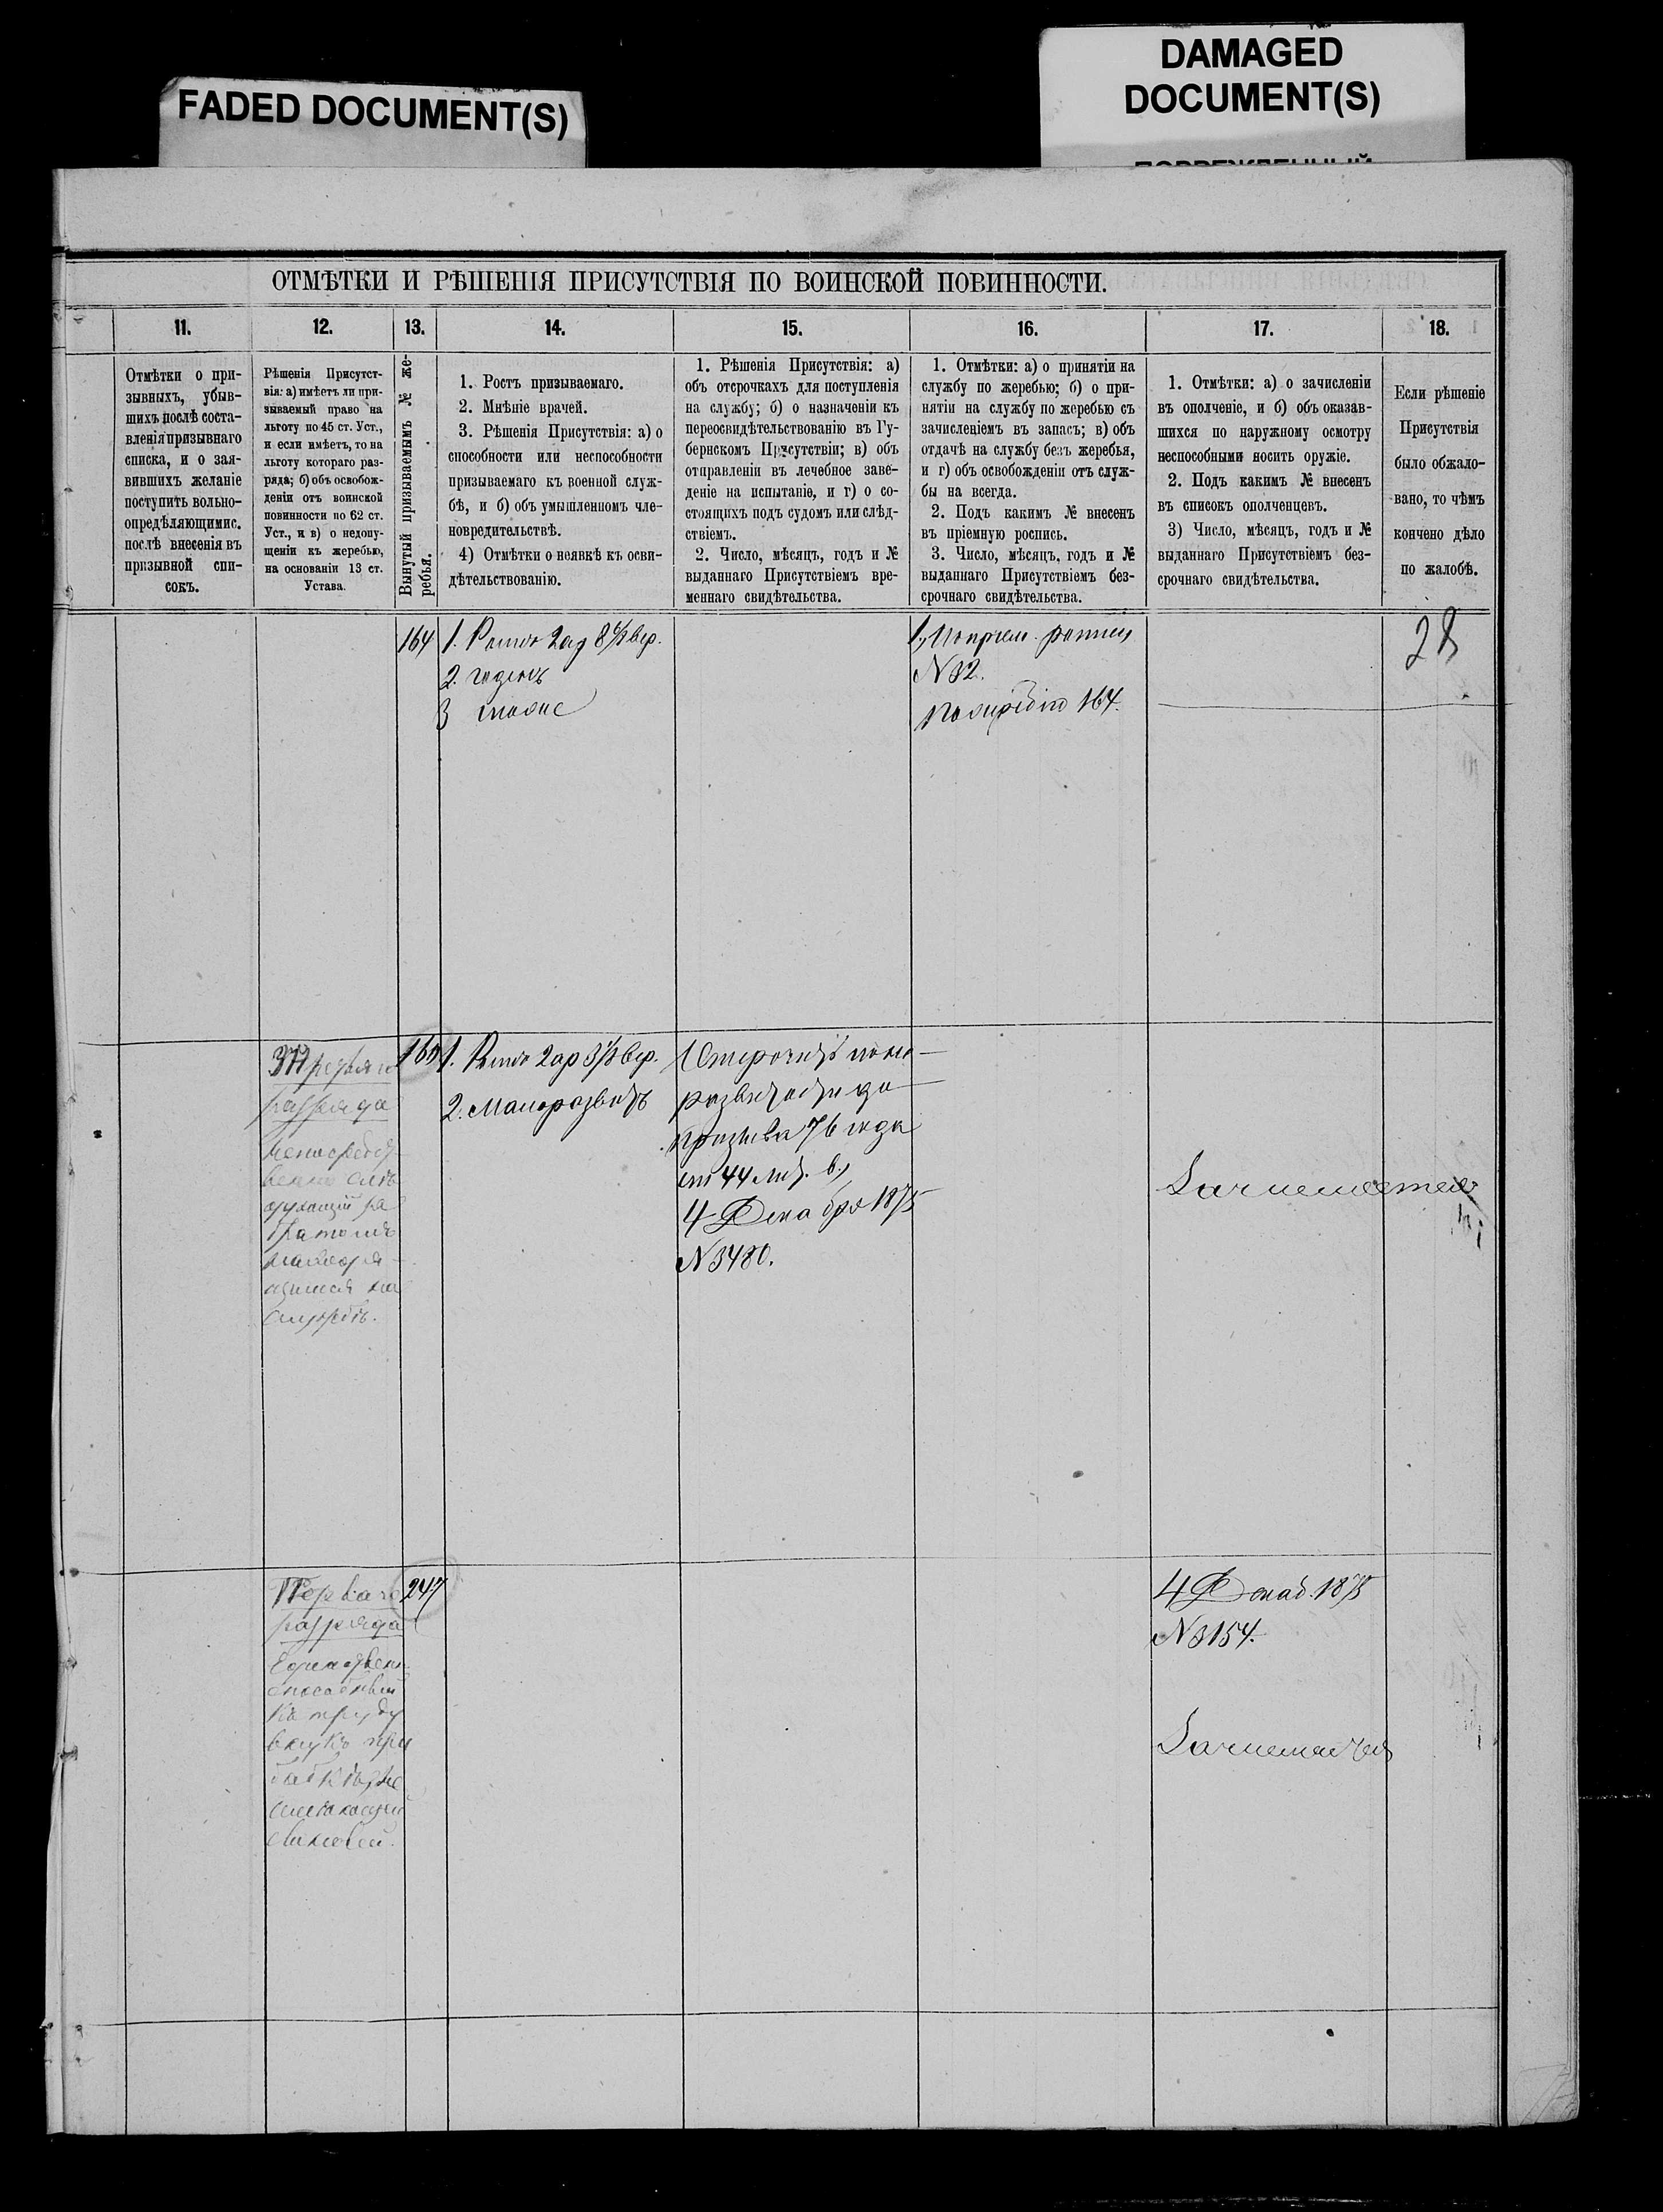 FADED DOCUMENT(S)
DAMAGED
DOCUMENT(S)
ОТМѢТКИ И РѢШЕНІЯ ПРИСУТСТВІЯ ПО ВОИНСКОЙ ПОВИННОСТИ.
11.
12.
13.
14.
15.
16.
17.
18.
Отмѣтки о при-
зывныхъ, убыв-
шихъ послѣ соста-
вленія призывнаго
списка, и о зая-
вившихъ желаніе
поступить вольно-
опредѣляющимис.
послѣ внесенія въ
призывной спи-
сокъ.
Рѣшенія Присутст-
вія: а) имѣетъ ли при-
зываемый право на
льготу по 45 ст. Уст.,
и если имѣетъ, то на
льготу котораго раз-
ряда; б) объ освобож-
деніи отъ воинской
повинности по 62 ст.
Уст., и в) о недопу-
щеніи къ жеребью,
на основаніи 13 ст.
Устава.
Вынутый призываемымъ № же-
ребья.
1. Ростъ призываемаго.
2. Мнѣніе врачей.
3. Рѣшенія Присутствія: а) о
способности или неспособности
призываемаго къ военной служ-
бѣ, и б) объ умышленномъ чле-
новредительствѣ.
4) Отмѣтки о неявкѣ къ осви-
дѣтельствованію.
1. Рѣшенія Присутствія: а)
объ отсрочкахъ для поступленія
на службу; б) о назначеніи къ
переосвидѣтельствованію въ Гу-
бернскомъ Присутствіи; в) объ
отправленіи въ лечебное заве-
деніе на испытаніе, и г) о со-
стоящихъ подъ судомъ или слѣд-
ствіемъ.
2. Число, мѣсяцъ, годъ и №
выданнаго Присутствіемъ вре-
меннаго свидѣтельства.
1. Отмѣтки: а) о принятіи на
службу по жеребью; б) о при-
нятіи на службу по жеребью съ
зачисленіемъ въ запасъ; в) объ
отдачѣ на службу безъ жеребья,
и г) объ освобожденіи отъ служ-
бы на всегда.
2. Подъ какимъ № внесенъ
въ пріемную роспись.
3. Число, мѣсяцъ, годъ и №
выданнаго Присутствіемъ без-
срочнаго свидѣтельства.
1. Отмѣтки: а) о зачисленіи
въ ополченіе, и б) объ оказав-
шихся по наружному осмотру
неспособными носить оружіе.
2. Подъ какимъ № внесенъ
въ списокъ ополченцевъ.
3) Число, мѣсяцъ, годъ и №
выданнаго Присутствіемъ без-
срочнаго свидѣтельства.
Если рѣшеніе
Присутствія
было обжало-
вано, то чѣмъ
кончено дѣло
по жалобѣ.
164
1. Ростъ 2 ар 8 4/8 вер.
2. годенъ
3
1, По пріем. росписи
№ 32.
По жеребію 164.
28
Третьяго
разряда
непосредст-
венно слѣ-
дующій за
братомъ
находя-
щимся на
службѣ.
1. Ростъ 2 ар 3 1/8 вер.
2. Малоразвитъ
1 Отсрочить по не-
развитости до
призыва 76 года
ст 44 лит. в,
4 Декабря 1875
№ 3480.
Перваго
разряда
Единствен.
способный
къ труду
внукъ при
бабкѣ, не
имѣющей
сыновей.
247
4 Декаб. 1875
№ 3154.